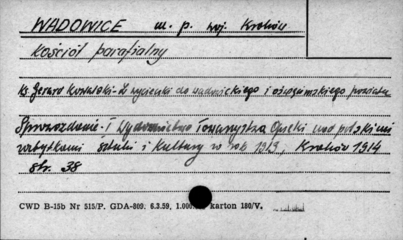 WADOWICE m. p. woj. Kraków
Kościół parafialny
Ks Gerard Kowalski - Z wycieczki do wadowickiego i oświęcimskiego powiatu
Sprawozdanie i Wydawnictwo Towarzystwa Opieki nad polskimi
zabytkami sztuki i kultury w rok 1913, Kraków 1914
str. 38
CWD B-15b Nr 515/P. GDA-809. 6.3.59, 1.000. karton 180/V.